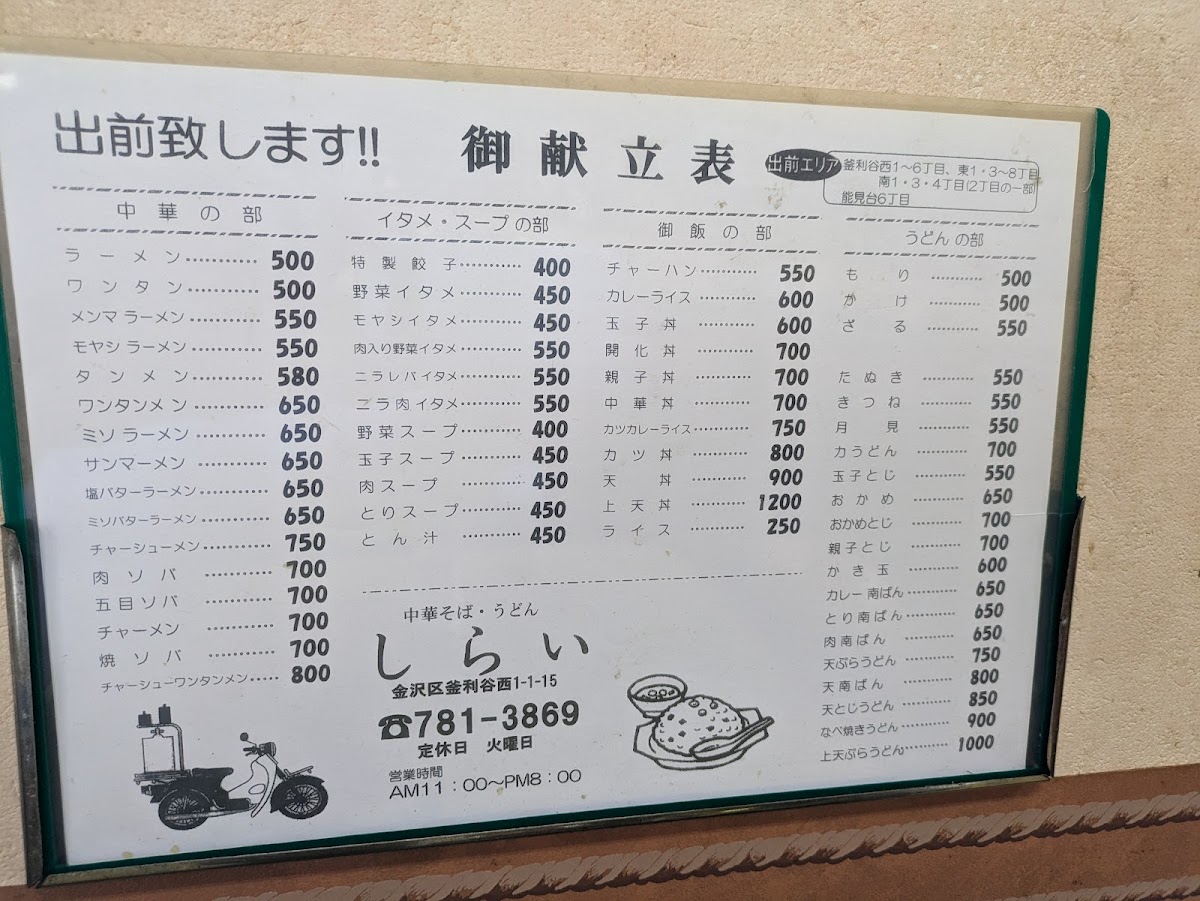 出前致します!!
御献立表
出前エリア
釜利谷西1〜6丁目、東1・3〜8丁目
南1・3・4丁目(2丁目の一部
能見台6丁目
中華の部
ラーメン 500
ワンタン 500
メンマラーメン 550
モヤシラーメン 550
タンメン 580
ワンタンメン 650
ミソラーメン 650
サンマーメン 650
塩バターラーメン 650
ミソバターラーメン 650
チャーシューメン 750
肉ソバ 700
五目ソバ 700
チャーメン 700
焼ソバ 700
チャーシューワンタンメン 800
イタメ・スープの部
特製餃子 400
野菜イタメ 450
モヤシイタメ 450
肉入り野菜イタメ 550
ニラレバイタメ 550
ニラ肉イタメ 550
野菜スープ 400
玉子スープ 450
肉スープ 450
とりスープ 450
とん汁 450
御飯の部
チャーハン 550
カレーライス 600
玉子丼 600
開化丼 700
親子丼 700
中華丼 700
カツカレーライス 750
カツ丼 800
天丼 900
上天丼 1200
ライス 250
うどんの部
もり 500
かけ 500
ざる 550
たぬき 550
きつね 550
月見 550
力うどん 700
玉子とじ 550
おかめ 650
おかめとじ 700
親子とじ 700
かき玉 600
カレー南ばん 650
とり南ばん 650
肉南ばん 650
天ぷらうどん 750
天南ばん 800
天とじうどん 850
なべ焼きうどん 900
上天ぷらうどん 1000
中華そば・うどん
しらい
金沢区釜利谷西1-1-15
☎781-3869
定休日 火曜日
営業時間
AM11:00〜PM8:00